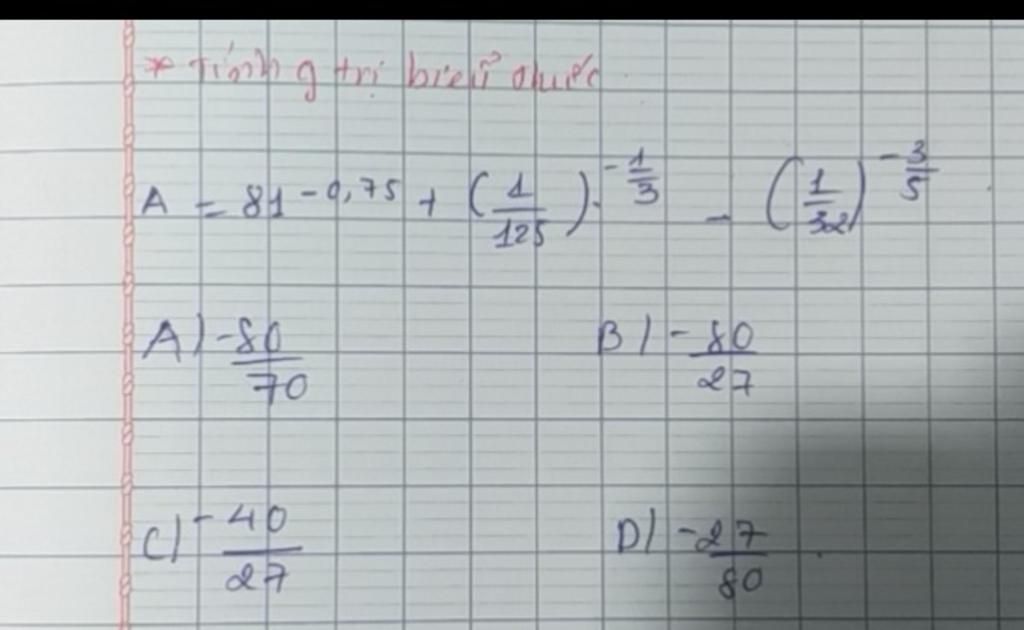 * Tính g trị biểu thức
A = 81^{-0,75} + (1/125)^{-1/3} - (1/32)^{-3/5}
A) -80/70 B) -80/27
C) -40/27 D) -27/80